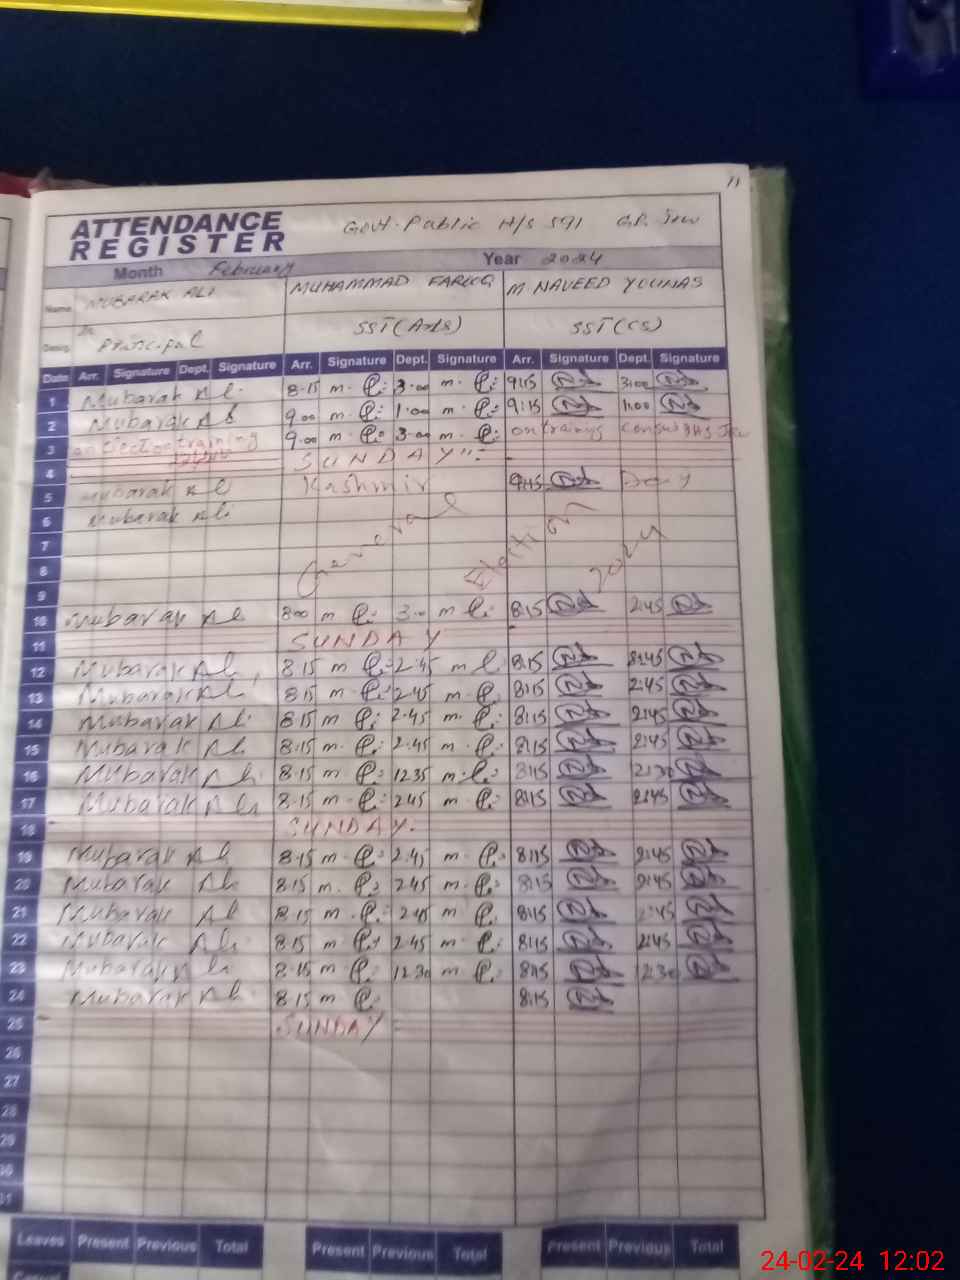 11
ATTENDANCE REGISTER Govt. Public H/S 591 G.B.
Month February Year 2024
Name MUBARAK ALI MUHAMMAD FAROOQ M NAVEED YOUNAS
Desig. Principal SST (Arts) SST (CS)
Date Arr. Signature Dept. Signature Arr. Signature Dept. Signature Arr. Signature Dept. Signature
1 Mubarak Ali 8.15 3.00 9:15 3:00
2 Mubarak Ali 9.00 1.00 9:15 1:00
3 on Election training 9.00 3.00 on training
4 SUNDAY
5 Mubarak Ali Kashmir 9:15 Day
6 Mubarak Ali
7 General Election 2024
8
9
10 Mubarak Ali 8.00 3.00 8:15 2:45
11 SUNDAY
12 Mubarak Ali 8.15 2.45 8:15 2:45
13 Mubarak Ali 8.15 2.45 8:15 2:45
14 Mubarak Ali 8.15 2.45 8:15 2:45
15 Mubarak Ali 8.15 2.45 8:15 2:45
16 Mubarak Ali 8.15 12.35 8:15 12:30
17 Mubarak Ali 8.15 2.45 8:15 2:45
18 SUNDAY
19 Mubarak Ali 8.15 2.45 8:15 2:45
20 Mubarak Ali 8.15 2.45 8:15 2:45
21 Mubarak Ali 8.15 2.45 8:15 2:45
22 Mubarak Ali 8.15 2.45 8:15 2:45
23 Mubarak Ali 8.15 12.30 8:15 12:30
24 Mubarak Ali 8.15 8:15
25 SUNDAY
26
27
28
29
30
31
Leaves Present Previous Total Present Previous Total Present Previous Total
Casual
24-02-24 12:02